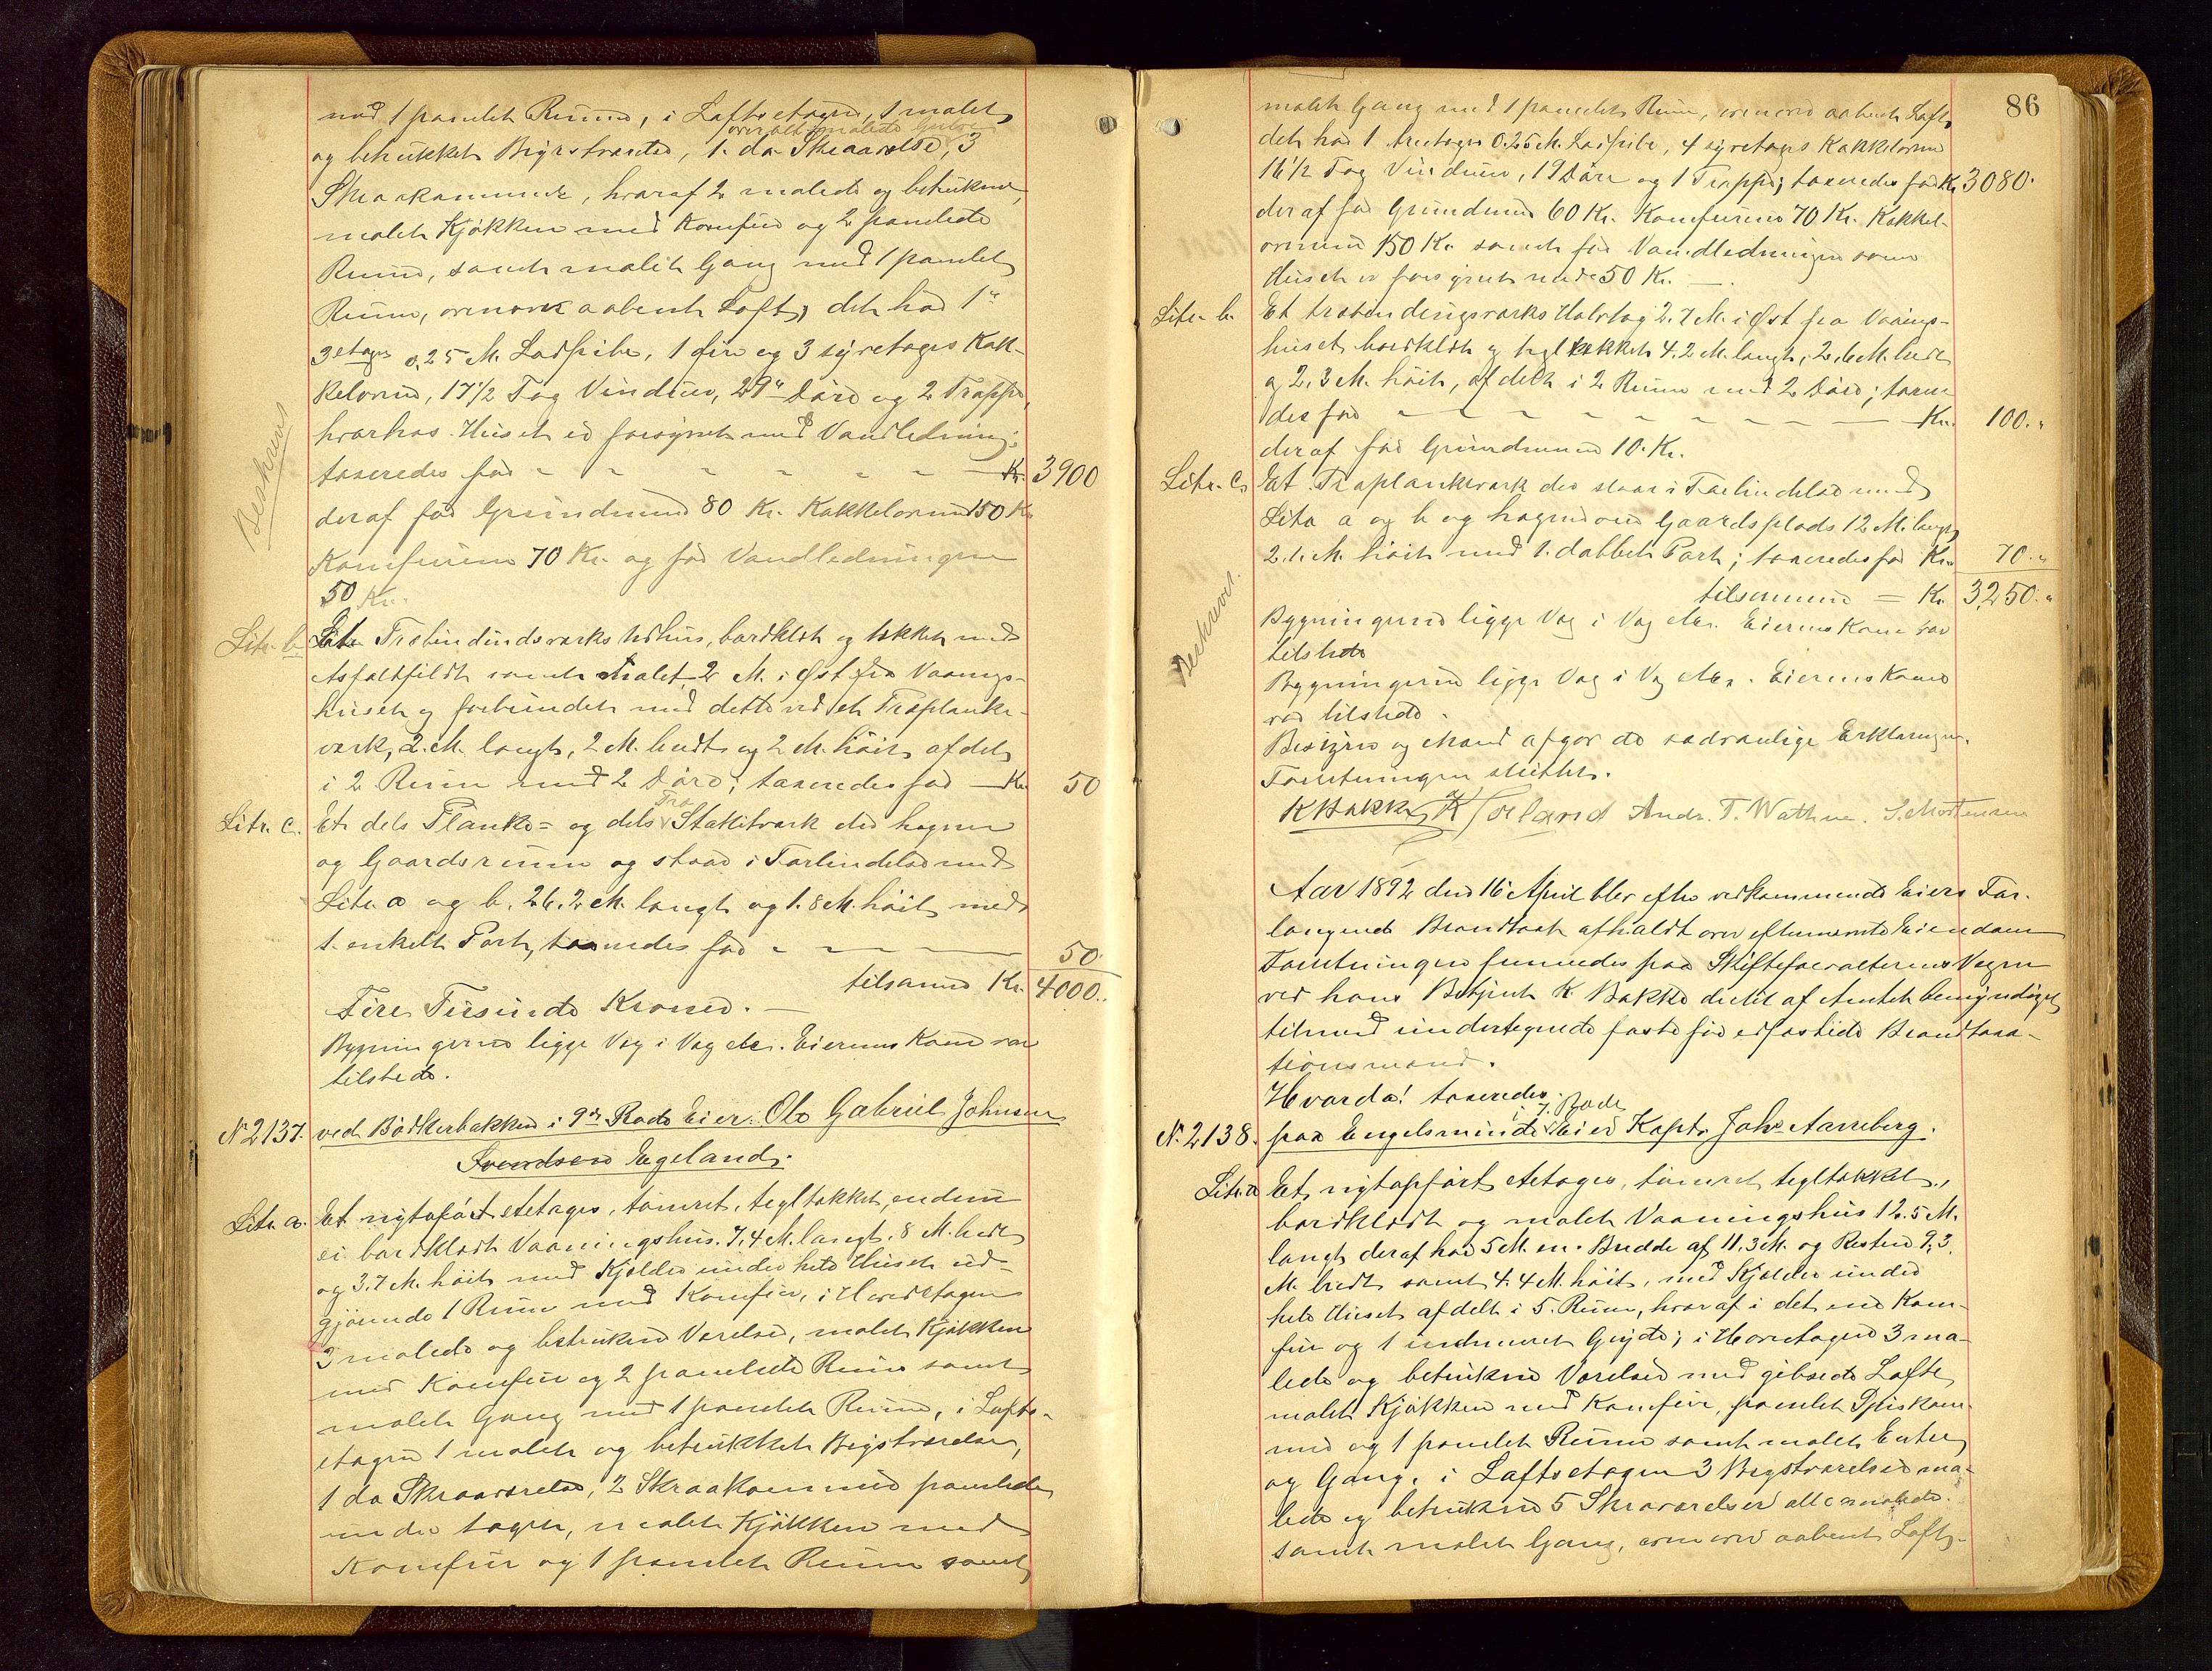 med 1 panelet Rum, i Loftsetagen, 1 malet
overalt malede Gulve
og betrukket Bigstværelse, 1 do Skraaværelse, 3
Skraakammere, hvoraf 2 malede og betrukne,
malet Kjøkken med Komfur og 2 panelede
Rum, samt malet Gang med 1 panelet
Rum, ovenover aabent Loft; det har 1
3etages 0.25 M. Ladpibe, 1 fire og 3 syretages Kak-
kelovne, 17½ Fag Vinduer, 29 Døre og 2 Trapper,
hvorhos Huset er forsynet med Vandledning;
taxeredes for - - - - - - Kr. 3900
deraf for Grundmuren 80 Kr. Kakkelovnene 150 Kr.
Komfurene 70 Kr. og for Vandledningen
50 Kr.
Beskreves
Litr. b. Et Træbindingsværks Udhus, bordklædt og tækket med
Asfaltfildt samt malet 2 M. i Øst fra Vaanings-
huset og forbundet med dette ved et Træplanke-
værk, 2. M. langt, 2 M. bredt og 2 M. høit, afdelt
i 2 Rum med 2 Døre; taxeredes for — Kr. 50
Litr. c. Et dels Planke= og dels Træ Stakitværk der hegner
og Gaardsrum og staar i Forbindelse med
Litr. a og b. 26.2 M. langt og 1.8 M. høit med
1. enkelt Port, taxeredes for - — — 50.
tilsammen Kr. 4000..
Fire Tusinde Kroner. —
Bygningerne ligge Væg i Væg etc. Eierens Kone var
tilstede.
No 2137. ved Bødkerbakken i 9de Rode Eier: Ole Gabriel Johnsen
Svendsen Egeland.
Litr. a. Et nytopført etetages, tømret, tegltækket, endnu
ei bordklædt Vaaningshus. 7,4 M. langt. 8 M. bredt
og 3.7 M. høit med Kjelder under hele Huset ud-
gjørende 1 Rum med Komfur, i Hovedetagen
3 malede og betrukne Værelser, malet Kjøkken
med Komfur og 2 panelede Rum samt
malet Gang med 1 panelet Rum, i Lofts-
etagen 1 malet og betrukket Bigstværelse,
1 do Skraaværelse, 2 Skraakammere panelede
under taget, malet Kjøkken med
Komfur og 1 panelet Rum samt
86
malet Gang med 1 panelet Rum, ovenover aabent Loft,
det har 1 treetages 0.25 M. Ladpibe, 4 syretages Kakkelovne
16½ Fag Vinduer, 19 Døre og 1 Trappe; taxeredes for Kr. 3080.
deraf for Grundmuren 60 Kr. Komfurene 70 Kr. Kakkel-
ovnene 150 Kr. samt for Vandledningen som
Huset er forsynet med 50 Kr. —.
Litr. b. Et træbindingsværks Halvtag 2.7 M. i Øst fra Vaanings-
huset, bordklædt og tegltækket 4.2 M. langt, 2.6 M. bredt
og 2.3 M. høit, afdelt i 2 Rum med 2 Døre; taxere-
des for - - - - - - - - — Kr. 100.
deraf for Grundmuren 10. Kr.
Litr. c. Et Træplankeværk der staar i Forbindelse med
Litr. a og b og hegner om Gaardsplads 12 M. langt,
2.1. M. høit med 1. dobbelt Port; taxeredes for Kr. 70.
tilsammen = Kr. 3,250.
Bygningerne ligge Væg i Væg etc. Eierens Kone var
tilstede
Beskrevet.
Bygningerne ligge Væg i Væg etc. Eierens Kone
var tilstede.
Besigtes og Mænd afgav de sædvanlige Erklæringer.
Forretningen sluttet.
K Bakke K Torland Andr. T. Wathne. S. Mortensen
Aar 1892 den 16 April blev efter vedkommende Eiers For-
langende Brandtaxt afholdt over efternævnte Eiendom
Forretningen fremmedes paa Skifteforvalterens Vegne
ved hans Betjent K. Bakke dertil af Amtet bemyndiget
tilmed undertegnede faste for edfæstede Brandtaxa-
tionsmænd.
Hvorda! taxeredes.
No 2138. paa Engelsminde i 7. Rode Eier Kapt. Johs Aarreberg.
Litr. a Et nytopført etetages, tømret tegltækket,
bordklædt og malet Vaaningshus 12.5 M.
langt, deraf har 5 M. en Bredde af 11.3 M. og Resten 9.3.
M. bredt samt 4.4 M. høit, med Kjelder under
hele Huset afdelt i 5. Rum, hvoraf i det ene Kom-
fur og 1 indmuret Gryde; i Hovedetagen 3 ma-
lede og betrukne Værelser med gibsede Lofte
malet Kjøkken med Komfur, panelet Spiskam-
mer og 1 panelet Rum samt malet Entre
og Gang. i Loftsetagen 3 Bigstværelser ma-
lede og betrukne 5 Skraaværelser alle malede.
samt malet Gang, ovenover aabent Loft.